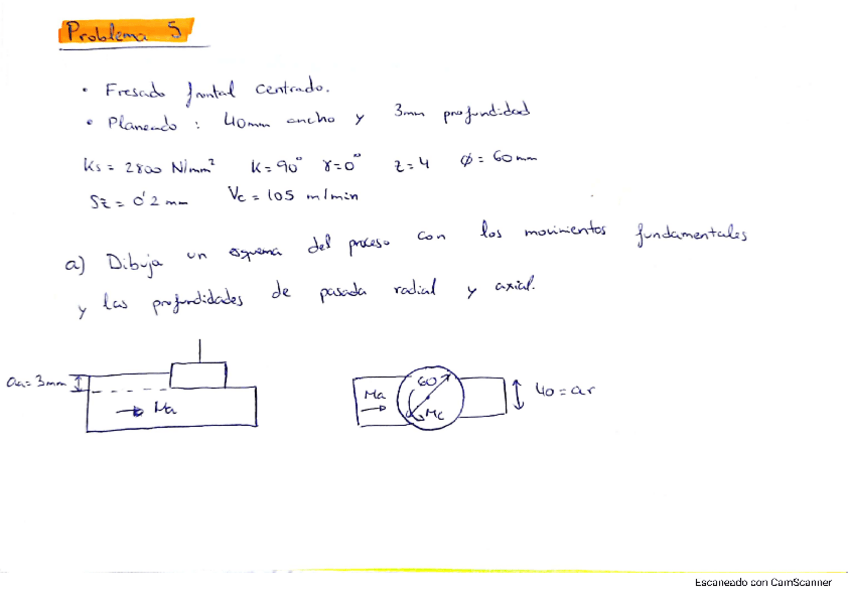 Problema 5
• Fresado frontal centrado.
• Planeado : 40mm ancho y 3mm profundidad
Ks = 2800 N/mm² K = 90° γ = 0° z = 4 ϕ = 60 mm
Sz = 0'2 mm Vc = 105 m/min
a) Dibuja un esquema del proceso con los movimientos fundamentales
y las profundidades de pasada radial y axial.
aa = 3mm
Ma
Ma
60
Mc
40 = ar
Escaneado con CamScanner